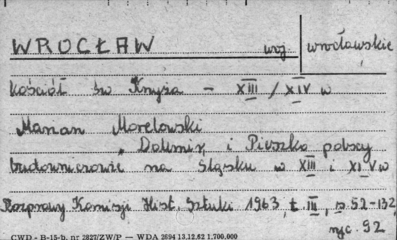 WROCŁAW woj. wrocławskie
kościół św Krzyża - XIII / XIV w
Marian Morelowski
"Dalemir i Pieszko polscy
budowniczowie na Śląsku w XIII i XIV w
Rozprawy Komisji Hist. Sztuki 1963, t. III, s. 52-132,
ryc. 92
CWD - B-15-b, nr 2827/ZW/P — WDA 2694 13.12.62 1.700.000